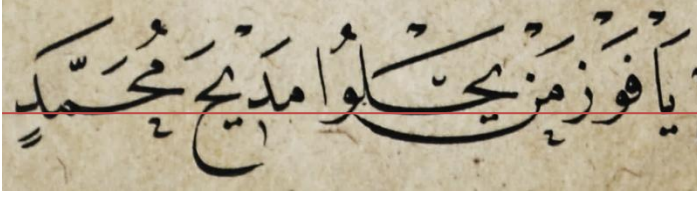 يَا فَوْزَ مَنْ يَجْلُوا مَدِيْحَ مُحَمَّدٍ